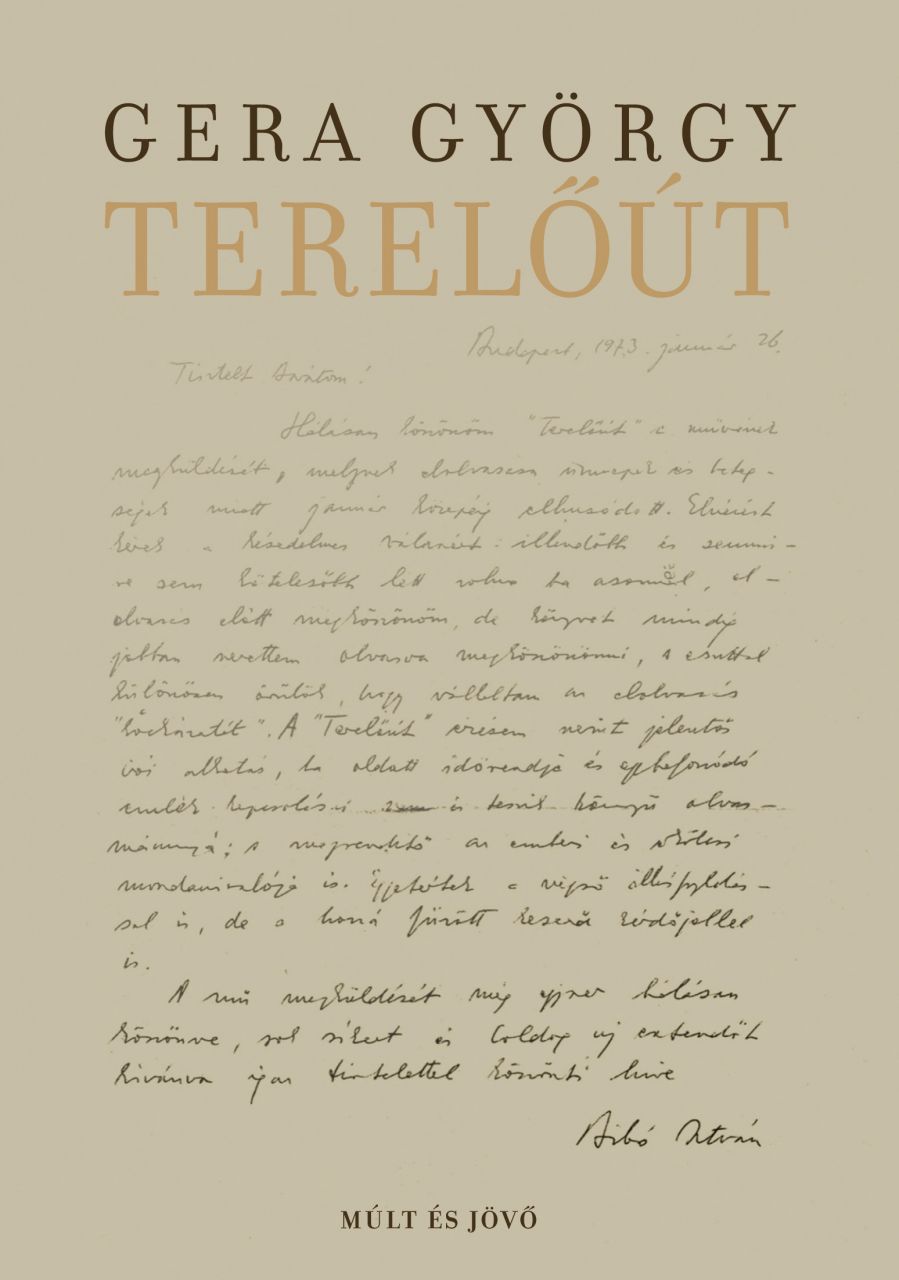 GERA GYÖRGY
TERELŐÚT
Budapest, 1973. január 26.
Tisztelt Barátom!
Hálásan köszönöm "Terelőút" c művének
megküldését, melynek elolvasása ünnepek és beteg-
ségek miatt január közepéig elhúzódott. Elnézést
kérek a késedelmes válaszért: illendőbb és semmi-
re sem kötelezőbb lett volna ha azonnal, el-
olvasás előtt megköszönöm, de könyvet mindig
jobban szerettem olvasva megköszönni, s ezúttal
különösen örülök, hogy vállaltam az elolvasás
"kockázatát". A "Terelőút" érzésem szerint jelentős
írói alkotás,
oldott időrendje és egybefonódó
emlék kapcsolásai
is teszik könnyű olvas-
mánnyá; s megrendítő az emberi és erkölcsi
mondanivalója is. Egyetértek a végső állásfoglalás-
sal is, de a hozzá fűzött keserű kérdőjellel
is.
A mű megküldését még egyszer hálásan
köszönve, sok sikert és boldog új esztendőt
kívánva igaz tisztelettel köszönti híve
Bibó István
MÚLT ÉS JÖVŐ